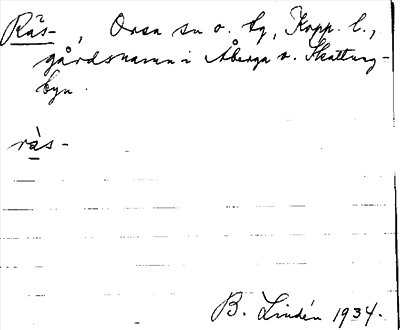 Räs-, Orsa sn o. tg, Kopp. l.,
gårdsnamn i Åberga o. Skattung-
byn.
rä̀s-
B. Lindén 1934.